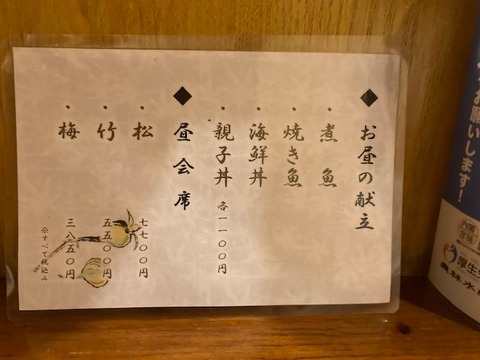 ◆お昼の献立
・煮魚
・焼き魚
・海鮮丼
・親子丼 各一一〇〇円
◆昼会席
・松 七七〇〇円
・竹 五五〇〇円
・梅 三八五〇円
※すべて税込み
お願いします!
厚生
農林水